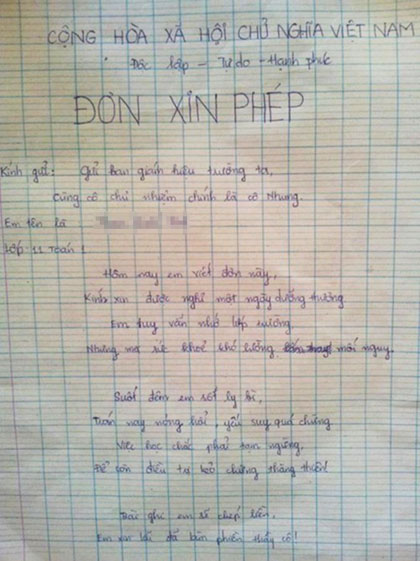 CỘNG HÒA XÃ HỘI CHỦ NGHĨA VIỆT NAM
Độc lập - Tự do - Hạnh phúc
ĐƠN XIN PHÉP
Kính gửi: Gửi ban giám hiệu trường ta,
Cùng cô chủ nhiệm chính là cô Nhung.
Em tên là
Lớp 11 Toán 1
Hôm nay em viết đơn này,
Kính xin được nghỉ một ngày dưỡng thương.
Em tuy vấn nhớ lớp trường,
Nhưng mà sức khoẻ khó lường mối nguy.
Suốt đêm em sốt ly bì,
Trán nay nóng hổi, yếu suy quá chừng.
Việc học chắc phải tạm ngừng,
Để còn điều trị kẻo chừng thăng thiên!
Bài ghi em sẽ chép liền,
Em xin lỗi đã làm phiền thầy cô!